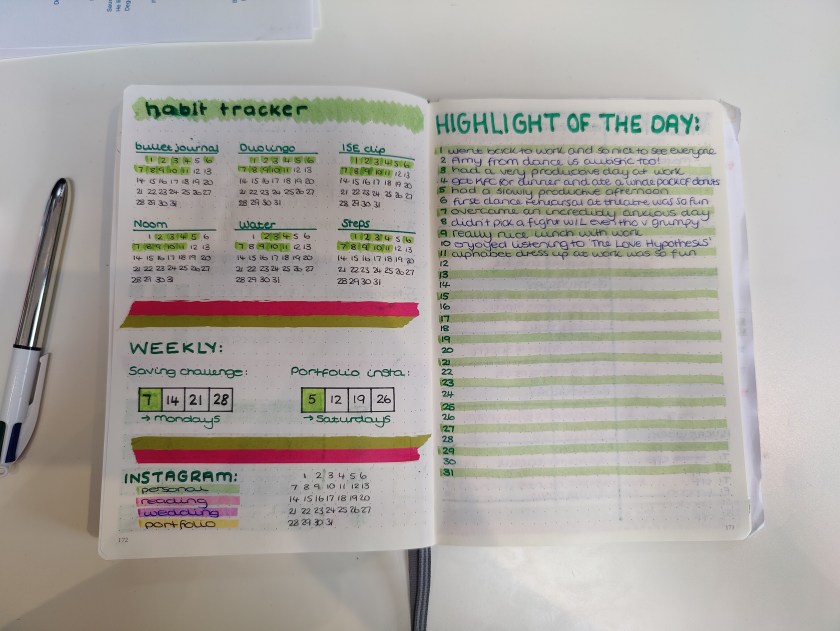 habit tracker
bullet journal
1 2 3 4 5 6
7 8 9 10 11 12 13
14 15 16 17 18 19 20
21 22 23 24 25 26 27
28 29 30 31
Duolingo
1 2 3 4 5 6
7 8 9 10 11 12 13
14 15 16 17 18 19 20
21 22 23 24 25 26 27
28 29 30 31
1SE clip
1 2 3 4 5 6
7 8 9 10 11 12 13
14 15 16 17 18 19 20
21 22 23 24 25 26 27
28 29 30 31
Noom
1 2 3 4 5 6
7 8 9 10 11 12 13
14 15 16 17 18 19 20
21 22 23 24 25 26 27
28 29 30 31
Water
1 2 3 4 5 6
7 8 9 10 11 12 13
14 15 16 17 18 19 20
21 22 23 24 25 26 27
28 29 30 31
Steps
1 2 3 4 5 6
7 8 9 10 11 12 13
14 15 16 17 18 19 20
21 22 23 24 25 26 27
28 29 30 31
WEEKLY:
Saving challenge:
7 14 21 28
→ Mondays
Portfolio insta:
5 12 19 26
→ Saturdays
INSTAGRAM:
personal
reading
wedding
portfolio
1 2 3 4 5 6
7 8 9 10 11 12 13
14 15 16 17 18 19 20
21 22 23 24 25 26 27
28 29 30 31
172
HIGHLIGHT OF THE DAY:
1 went back to work and so nice to see everyone
2 Amy from dance is autistic too!
3 had a very productive day at work
4 got KFC for dinner and ate a whole pack of donuts
5 had a slowly productive afternoon
6 first dance rehearsal at theatre was so fun
7 overcame an incredibly anxious day
8 didn't pick a fight w/ L even tho v grumpy
9 really nice lunch with work
10 enjoyed listening to 'The Love Hypothesis'
11 alphabet dress up at work was so fun
12
13
14
15
16
17
18
19
20
21
22
23
24
25
26
27
28
29
30
31
173